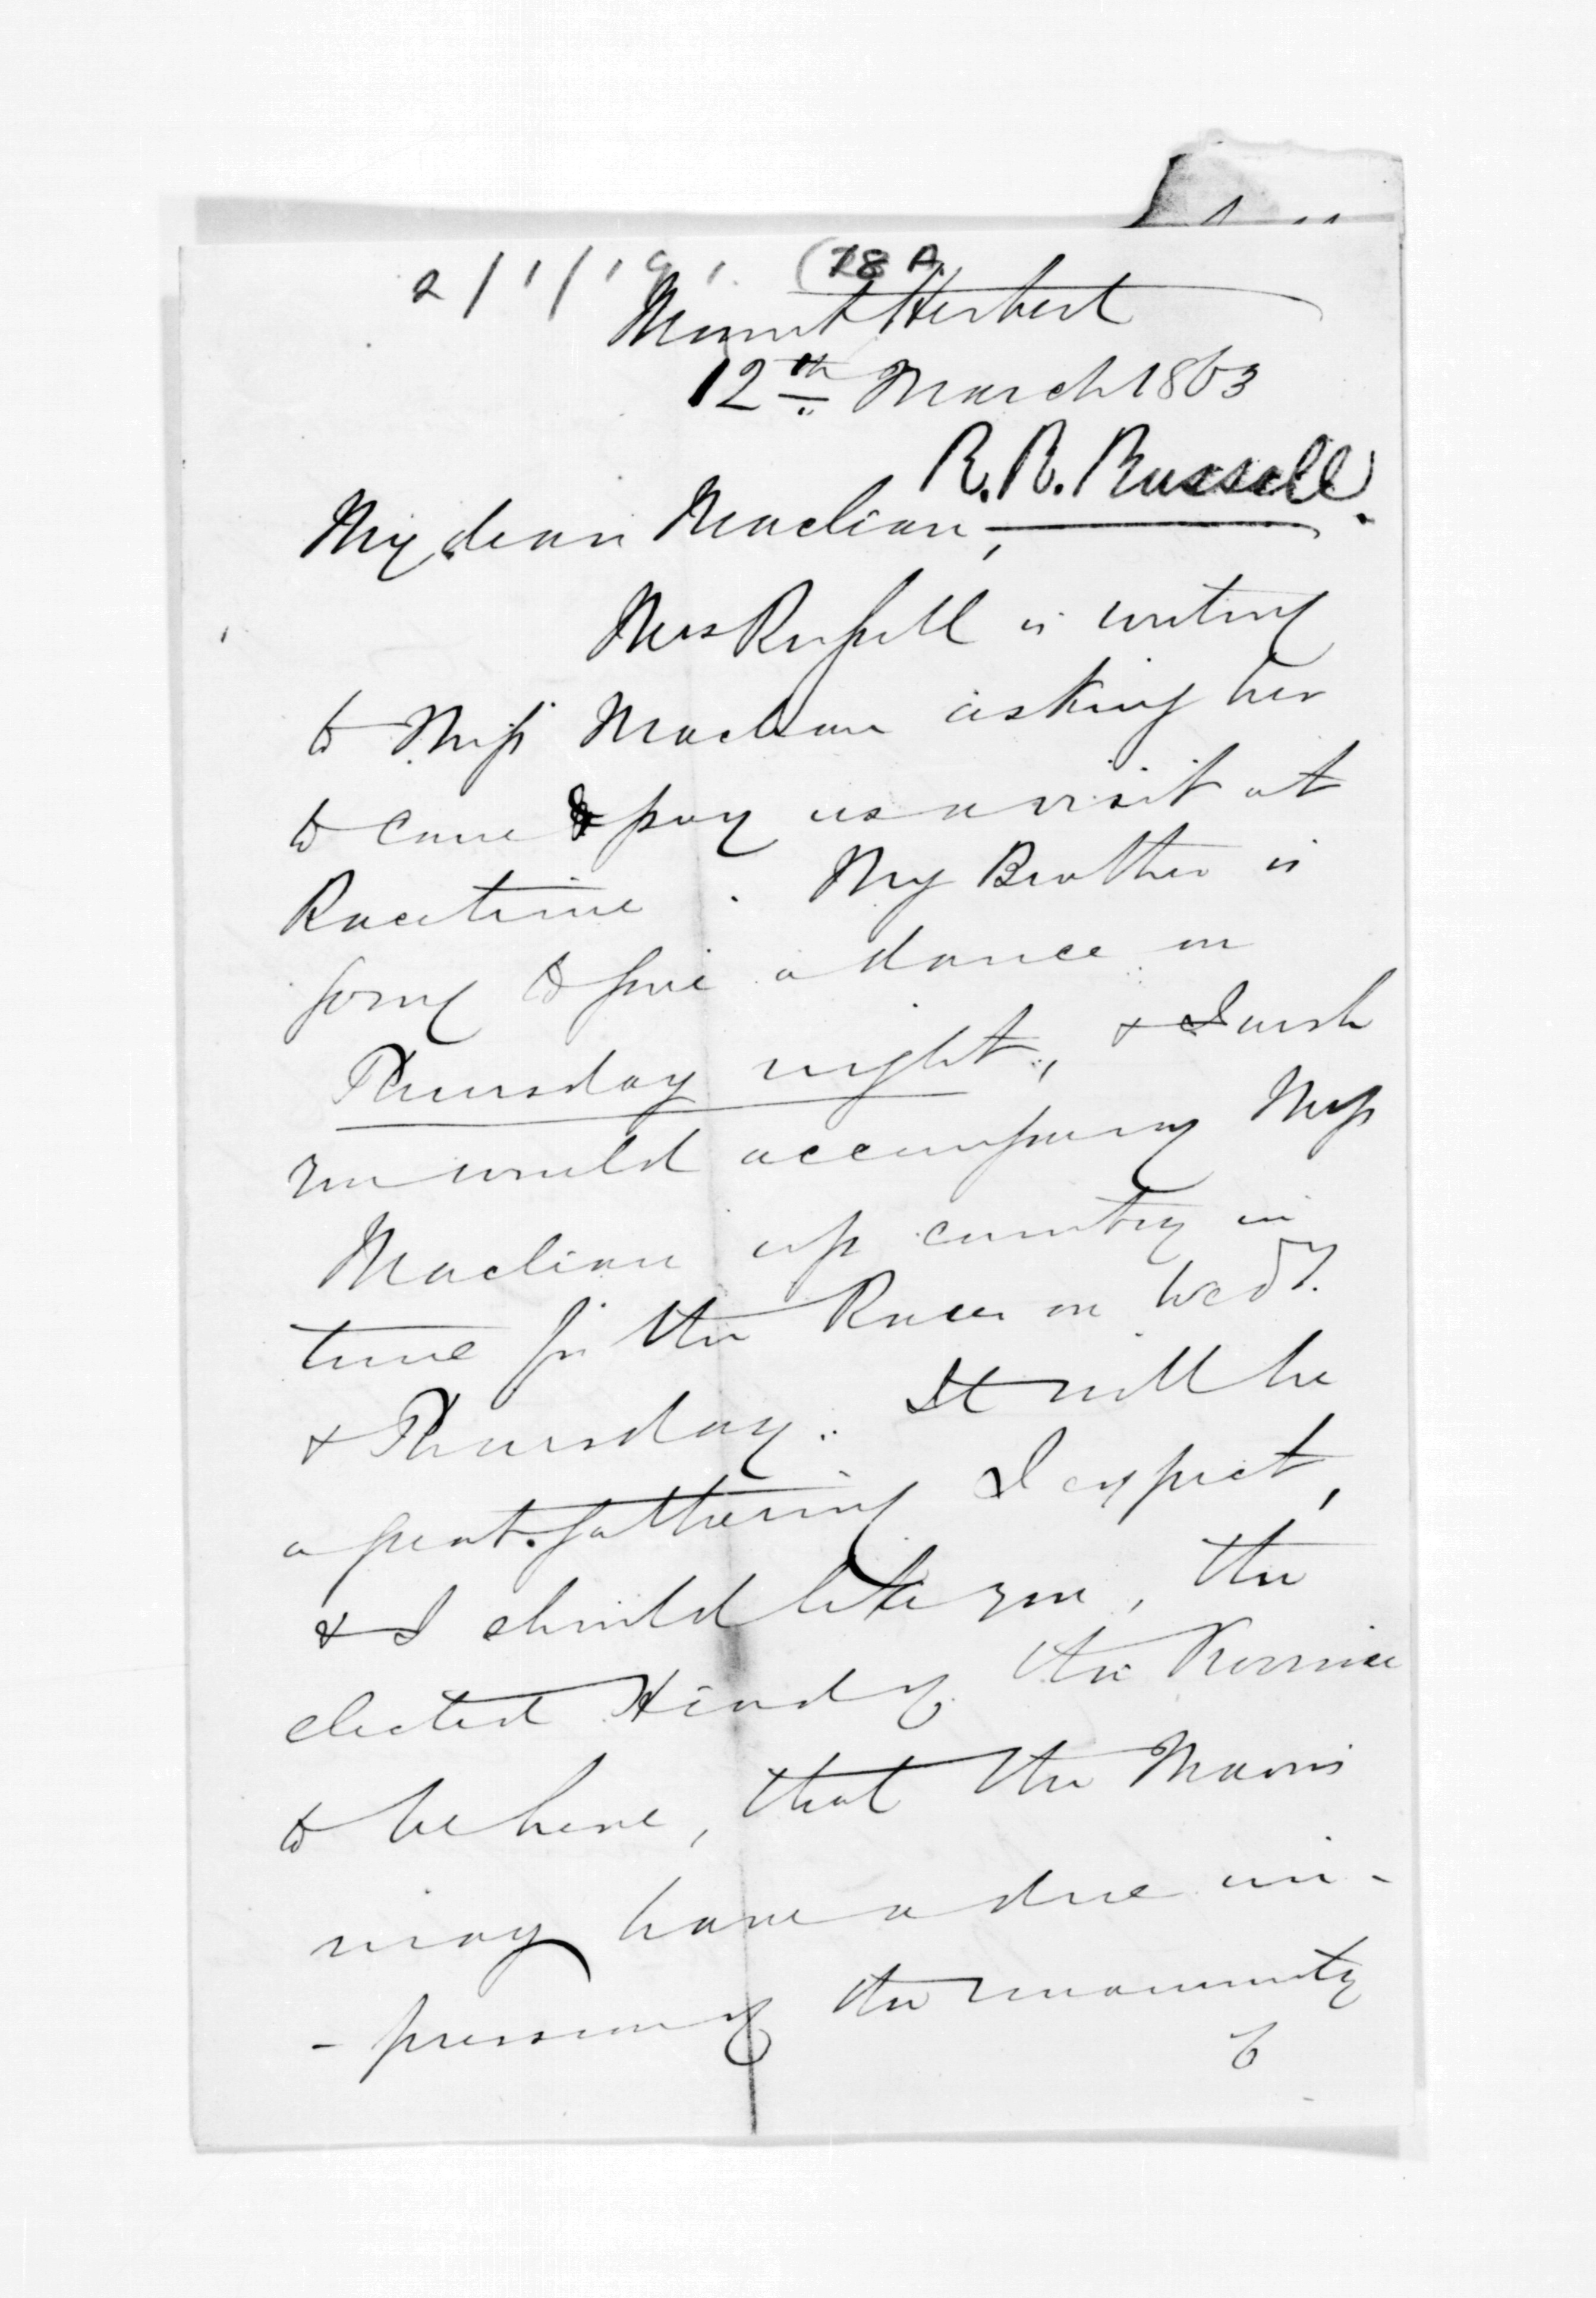 2/1/19 (78 A.
Mount Herbert
12th March 1863
R. R. Russell.
My dear Maclean,
Mrs Russell is writing
to Miss Maclean asking her
to come & pay us a visit at
Racetime. My Brother is
going to give a dance on
Thursday night, & I wish
you would accompany Miss
Maclean up country in
time for the Races on Wedy.
& Thursday. It will be
a great gathering I expect,
& I should like you, the
elected Head of the Province
to be here, that the Maoris
may have a due im-
-pression of the unanimity
of